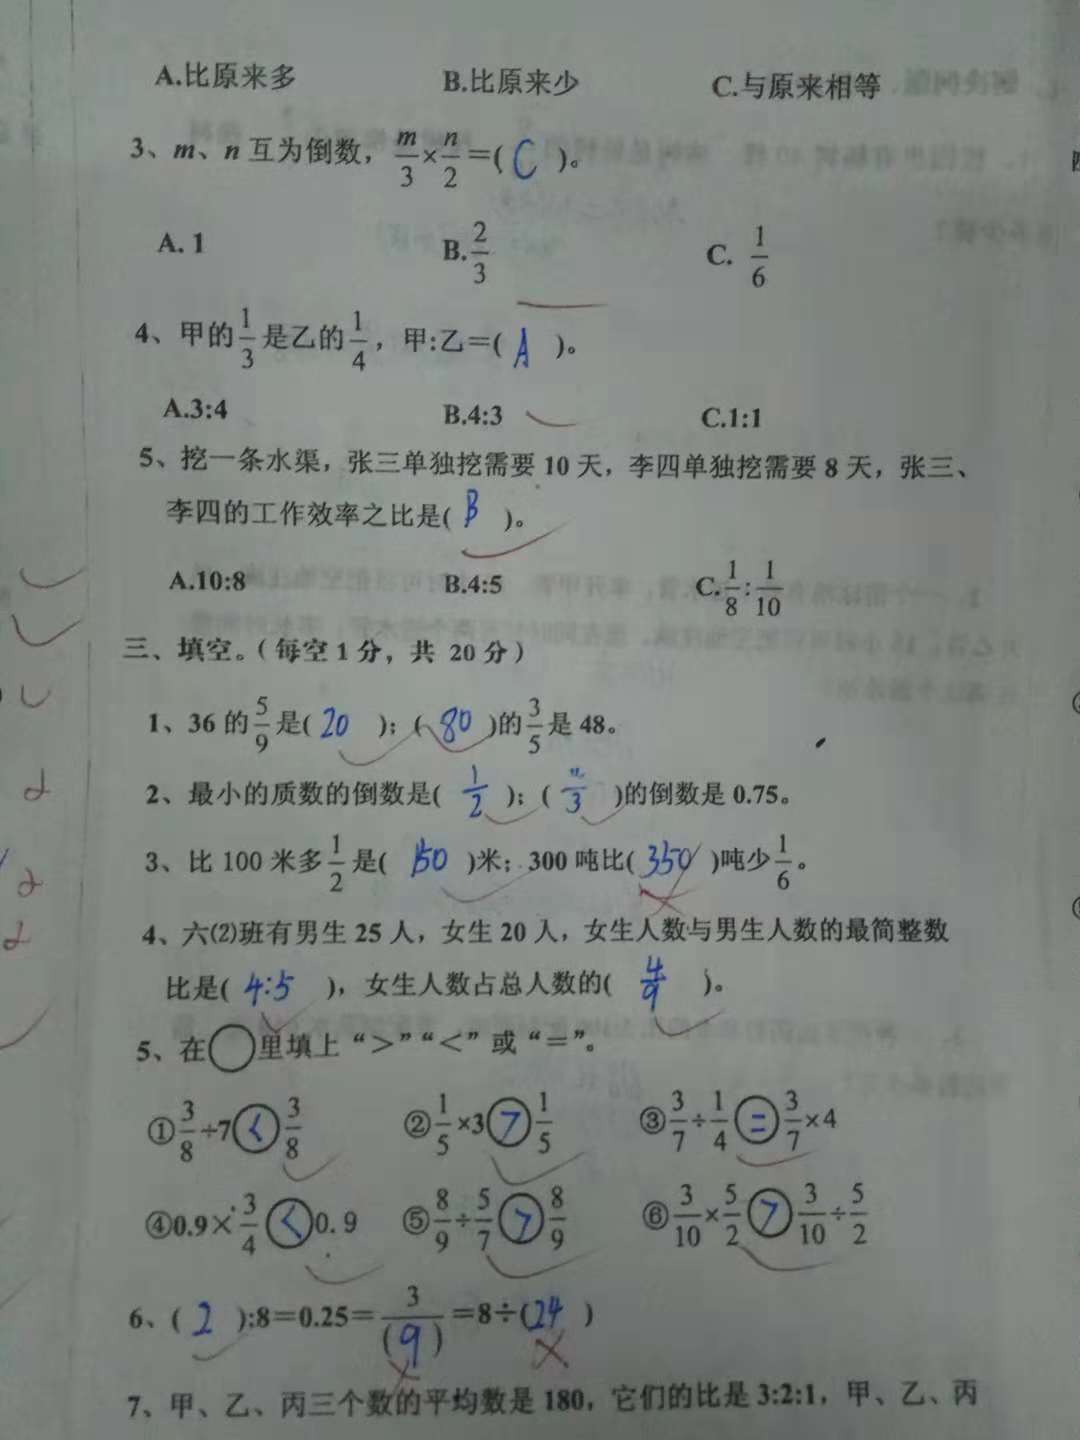 A.比原来多 B.比原来少 C.与原来相等
3、m、n互为倒数，m/3×n/2=( C )。
A. 1 B.2/3 C. 1/6
4、甲的1/3是乙的1/4，甲:乙=( A )。
A.3:4 B.4:3 C.1:1
5、挖一条水渠，张三单独挖需要10天，李四单独挖需要8天，张三、
李四的工作效率之比是( B )。
A.10:8 B.4:5 C.1/8:1/10
三、填空。（每空1分，共 20分）
1、36的5/9是( 20 )；( 80 )的3/5是48。
2、最小的质数的倒数是( 1/2 )；( /3 )的倒数是0.75。
3、比100米多1/2是( 150 )米；300吨比( 350 )吨少1/6。
4、六⑵班有男生25人，女生20人，女生人数与男生人数的最简整数
比是( 4:5 )，女生人数占总人数的( 4/9 )。
5、在○里填上“>”“<”或“=”。
①3/8÷7<3/8 ②1/5×3>1/5 ③3/7÷1/4=3/7×4
④0.9×3/4<0.9 ⑤8/9÷5/7>8/9 ⑥3/10×5/2>3/10÷5/2
6、( 2 ):8=0.25=3/(9)=8÷(24 )
7、甲、乙、丙三个数的平均数是180，它们的比是3:2:1，甲、乙、丙